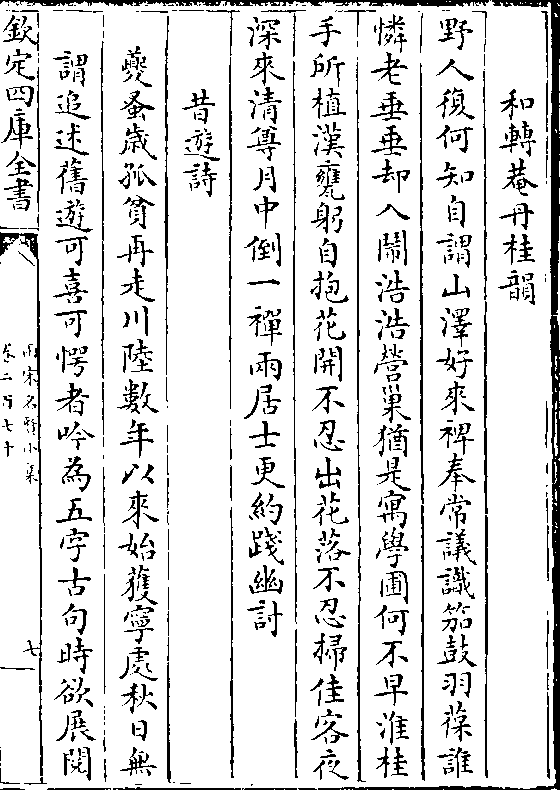 和轉菴丹桂韻
野人復何知自謂山澤好來裨奉常議識笳鼓羽葆誰
憐老垂垂却入鬧浩浩營巢猶是寓學圃何不早淮桂
手所植漢甕躬自抱花開不忍出花落不忍掃佳客夜
深來清尊月中倒一禪兩居士更約踐幽討
昔遊詩
夔蚤歲孤貧再走川陸數年以來始獲寧處秋日無
謂追述舊遊可喜可愕者吟為五字古句時欲展閱
欽定四庫全書
兩宋名賢小集
卷二百七十
七